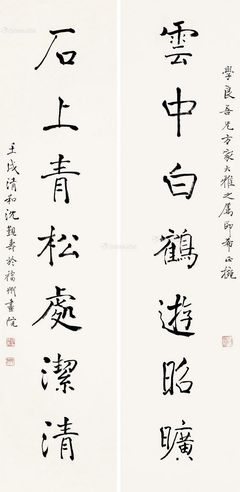 學良吾兄方家大雅之屬即希正椀
雲中白鶴遊昭曠
石上青松處潔清
壬戌清和沈覲壽於福州畫院